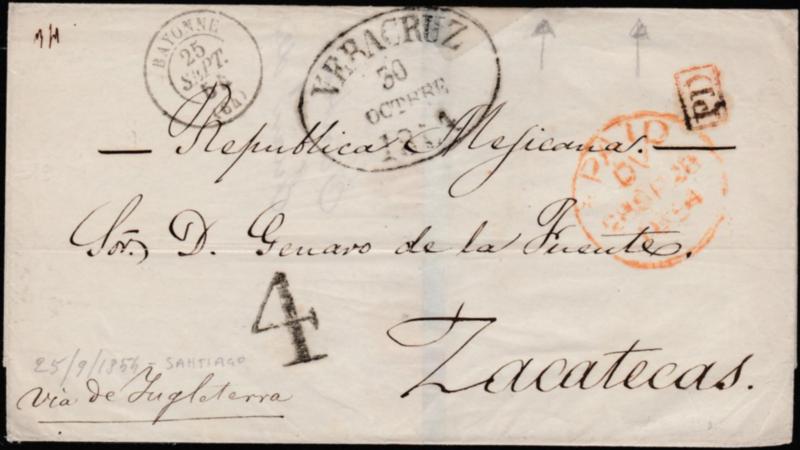 BAYONNE
25
SEPT.
54
(64)
VERACRUZ
30
OCTBRE
PD
PAID
28
1854
— Republica Mejicana. —
Sor. D. Genaro de la Fuente.
4
25/9/1854 - SANTIAGO
via de Inglaterra
Zacatecas.